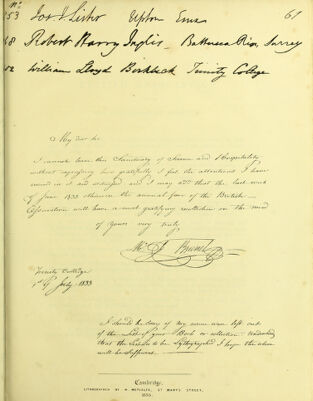 No.
253 Jos. J. Lister Upton Essex 61
68 Robert Harry Inglis Battersea Rise, Surrey
William Lloyd Birkbeck Trinity College
My dear Sir
I cannot leave this Sanctuary of Science and Hospitality
without expressing how gratefully I feel the attentions I have
received in it and I may add that the last week
of June 1833 the annual of the British
Association will have a most gratifying on the mind
of yours very truly
Brunel
Trinity College
1st of July 1833
I should be sorry if my name were left out
of the of your Book or collection
that the to be Lythographed I hope the above
will be sufficient
Cambridge,
LITHOGRAPHED BY H. METCALFE, ST MARY'S STREET,
1833.